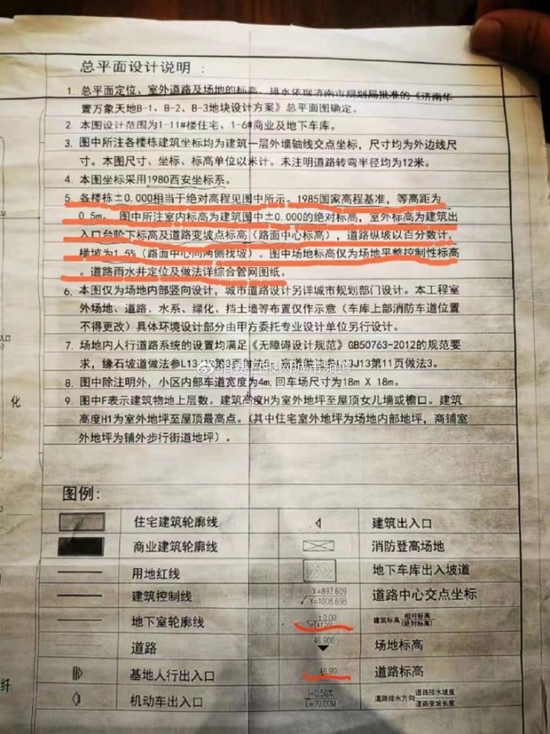 总平面设计说明：
1. 总平面定位、室外道路及场地的标高、排水依据济南市规划局批准的《济南华
置万象天地B-1、B-2、B-3地块设计方案》总平面图确定。
2. 本图设计范围为1-11#楼住宅、1-6#商业及地下车库。
3. 图中所注各楼栋建筑坐标均为建筑一层外墙轴线交点坐标，尺寸均为外边线尺
寸。本图尺寸、坐标、标高单位以米计。未注明道路转弯半径均为12米。
4. 本图坐标采用1980西安坐标系。
5. 各楼栋±0.000相当于绝对高程见图中所示。1985国家高程基准，等高距为
0.5m。图中所注室内标高为建筑图中±0.000的绝对标高，室外标高为建筑出
入口台阶下标高及道路变坡点标高（路面中心标高），道路纵坡以百分数计，
横坡为1.5%（路面中心向两侧找坡）。图中场地标高仅为场地平整控制性标高
。道路雨水井定位及做法详综合管网图纸。
6. 本图仅为场地内部竖向设计，城市道路设计另详城市规划部门设计。本工程室
外场地、道路、水系、绿化、挡土墙等布置仅作示意（车库上部消防车道位置
不得更改）具体环境设计部分由甲方委托专业设计单位另行设计。
7. 场地内人行道路系统的设置均满足《无障碍设计规范》GB50763-2012的规范要
求，缘石坡道做法参L13
J13第11页做法3。
8. 图中除注明外，小区内部车道宽度为4m，回车场尺寸为18m X 18m。
9. 图中F表示建筑物地上层数。建筑高度H为室外地坪至屋顶女儿墙或檐口。建筑
高度H1为室外地坪至屋顶最高点。（其中住宅室外地坪为场地内部地坪，商铺室
外地坪为铺外步行街道地坪）。
化
图例：
住宅建筑轮廓线
建筑出入口
商业建筑轮廓线
消防登高场地
用地红线
地下车库出入坡道
建筑控制线
X=897.609
Y=1008.698
道路中心交点坐标
地下室轮廓线
±0.00
建筑标高
相对标高
绝对标高
道路
46.900
场地标高
基地人行出入口
46.90
道路标高
机动车出入口
i=0.50%
L=70.00M
道路排水方向
道路排水坡度
道路变坡长度
纤